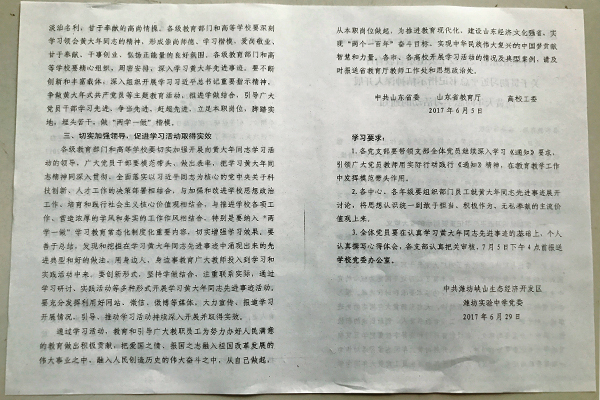 淡泊名利，甘于奉献的高尚情操。各级教育部门和高等学校要深刻
学习领会黄大年同志的精神，形成崇尚师德、学习楷模、爱岗敬业、
甘于奉献、干事创业、弘扬正能量的良好氛围。各级教育部门和高
等学校要精心组织，周密安排，深入学习黄大年先进事迹。要不断
创新和丰富载体，深入组织开展学习习近平总书记重要指示精神、
争做黄大年式共产党员等主题教育活动，推进学做结合，引导广大
党员干部学习先进、争当先进、赶超先进，立足本职岗位，脚踏实
地，埋头苦干，做“两学一做”楷模。
三、切实加强领导，促进学习活动取得实效
各级教育部门和高等学校要切实加强开展向黄大年同志学习活
动的领导，广大党员干部要模范带头，做出表率，把学习黄大年同
志精神同深入贯彻、全面落实以习近平同志为核心的党中央关于科
技创新、人才工作的决策部署相结合，与加强和改进学校思想政治
工作、培育和践行社会主义核心价值观相结合，与推进学校各项工
作、营造浓厚的学风和务实的工作作风相结合，特别是要纳入“两
学一做”学习教育常态化制度化重要内容，切实增强学习效果。要
善于总结、发现和挖掘在学习黄大年同志先进事迹中涌现出来的先
进典型和好的做法，用身边人、身边事教育广大教师投入到学习和
实践活动中来。要创新形式，坚持学做结合，注重联系实际，通过
学习研讨、实践活动等多种形式开展学习黄大年同志先进事迹活动。
要充分发挥利用好网站、微信、微博等媒体，大力宣传、报道学习
开展情况，引导、推动学习活动持续深入开展并取得实效。
通过学习活动，教育和引导广大教职员工为努力办好人民满意
的教育做出积极贡献，把爱国之情、报国之志融入祖国改革发展的
伟大事业之中、融入人民创造历史的伟大奋斗之中，从自己做起，
从本职岗位做起，为推进教育现代化，建设山东经济文化强省，实
现“两个一百年”奋斗目标、实现中华民族伟大复兴的中国梦贡献
智慧和力量。各市、各高校开展学习活动的情况及典型案例，请及
时报送省教育厅教师工作处和思想政治处。
中共山东省委 山东省教育厅 高校工委
2017年6月5日
学习要求：
1.各党支部要带领支部全体党员继续深入学习《通知》要求，
引领广大党员教师用实际行动践行《通知》精神，在教育教学工作
中发挥模范带头作用。
2.各中心、各年级要组织部门员工就黄大年同志先进事迹展开
讨论，将思想认识统一到敢于担当、积极作为、无私奉献的主流价
值观上来。
3.全体党员要在认真学习黄大年同志先进事迹的基础上，个人
认真撰写心得体会，各支部认真把关审核，7月5日下午4点前报送
学校党委办公室。
中共潍坊峡山生态经济开发区
潍坊实验中学党委
2017年6月29日